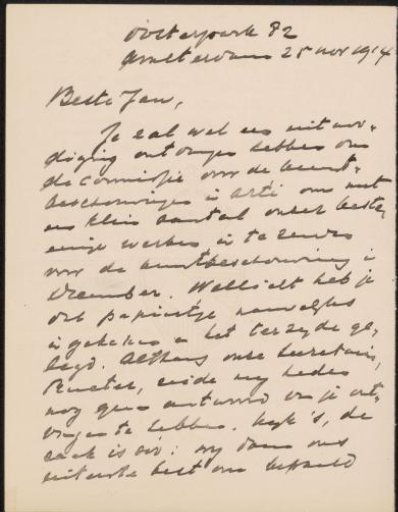 Oosterpark 82
Amsterdam 25 nov 1914
Beste Jan,
Je zal wel een uitnoo-
diging ontvangen hebben van
de commissie voor de kunst-
beschouwingen in Arti om met
een klein aantal onzer beste
eenige werken in te zenden
voor de kunstbeschouwing in
december. Wellicht heb je
dat papiertje nauwelijks
ingekeken en het terzijde ge-
legd. Althans onze secretaris,
zeide mij heden
nog geen antwoord van je ont-
vangen te hebben. Kijk 's, de
zaak is zoo: wij doen ons
uiterste best om bepaald